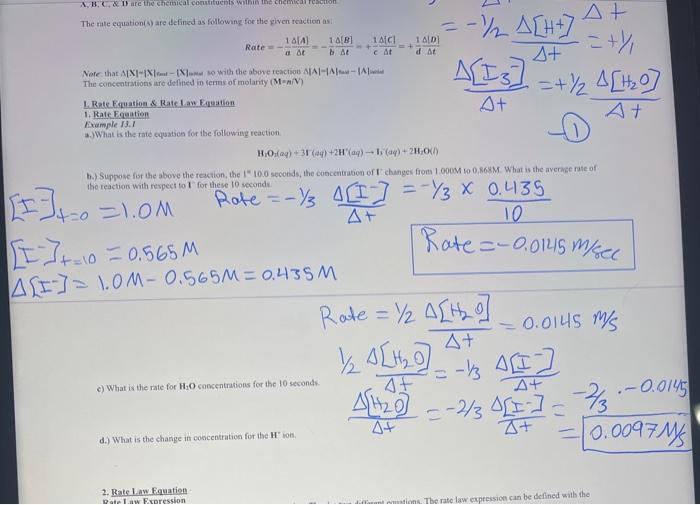 A, B, C, & D are the chemical constituents within the chemical reaction.
The rate equation(s) are defined as following for the given reaction as:
Rate = - 1 Δ[A] / a Δt = - 1 Δ[B] / b Δt = + 1 Δ[C] / c Δt = + 1 Δ[D] / d Δt
= -1/2 Δ[H+] / Δt = +1/1
Δt
Δ[I3-] / Δt = +1/2 Δ[H2O] / Δt
①
Note: that Δ[X]=[X]final - [X]initial so with the above reaction Δ[A]=[A]final - [A]initial
The concentrations are defined in terms of molarity (M=n/V)
I. Rate Equation & Rate Law Equation
1. Rate Equation
Example 13.1
a.)What is the rate equation for the following reaction.
H2O2(aq) + 3I-(aq) +2H+(aq) → I3-(aq) + 2H2O(l)
b.) Suppose for the above the reaction, the 1st 10.0 seconds, the concentration of I- changes from 1.000M to 0.868M. What is the average rate of
the reaction with respect to I- for these 10 seconds.
[I-]t=0 = 1.0M
Rate = -1/3 Δ[I-] / Δt = -1/3 x 0.435 / 10
[I-]t=10 = 0.565M
Rate = -0.0145 M/sec
Δ[I-] = 1.0M - 0.565M = 0.435M
Rate = 1/2 Δ[H2O] / Δt = 0.0145 M/s
1/2 Δ[H2O] / Δt = -1/3 Δ[I-] / Δt
c) What is the rate for H2O concentrations for the 10 seconds.
Δ[H2O] / Δt = -2/3 Δ[I-] / Δt = -2/3 · -0.0145
= 0.0097 M/s
d.) What is the change in concentration for the H+ ion.
2. Rate Law Equation
Rate Law Expression
different equations. The rate law expression can be defined with the